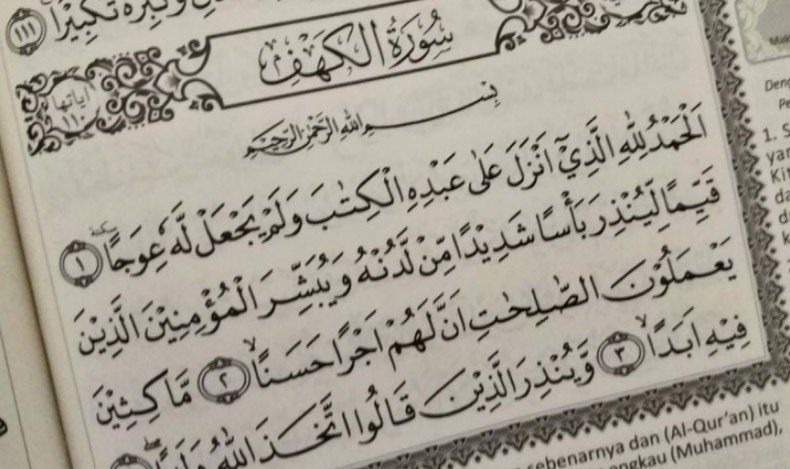 وَكَبِّرْهُ تَكْبِيْرًا ١١١
سُورَةُ الْكَهْفِ
اٰيَاتُهَا ١١٠
بِسْمِ اللّٰهِ الرَّحْمٰنِ الرَّحِيْمِ
اَلْحَمْدُ لِلّٰهِ الَّذِيْٓ اَنْزَلَ عَلٰى عَبْدِهِ الْكِتٰبَ وَلَمْ يَجْعَلْ لَّهٗ عِوَجًا ۜ ١
قَيِّمًا لِّيُنْذِرَ بَأْسًا شَدِيْدًا مِّنْ لَّدُنْهُ وَيُبَشِّرَ الْمُؤْمِنِيْنَ الَّذِيْنَ
يَعْمَلُوْنَ الصّٰلِحٰتِ اَنَّ لَهُمْ اَجْرًا حَسَنًاۙ ٢ مَّاكِثِيْنَ
فِيْهِ اَبَدًاۙ ٣ وَّيُنْذِرَ الَّذِيْنَ قَالُوا اتَّخَذَ اللّٰهُ وَلَدًا
sebenarnya dan (Al-Qur'an) itu
(Muhammad),